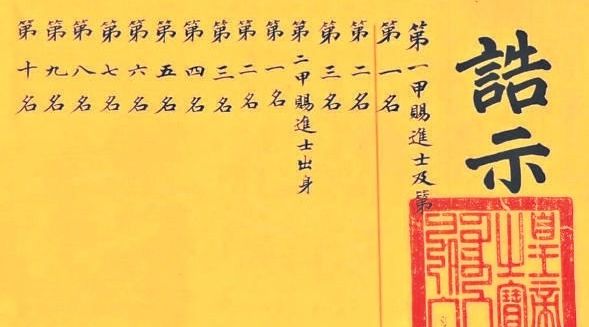 誥示
第一甲賜進士及第
第一名
第二名
第三名
第二甲賜進士出身
第一名
第二名
第三名
第四名
第五名
第六名
第七名
第八名
第九名
第十名
皇帝之寶